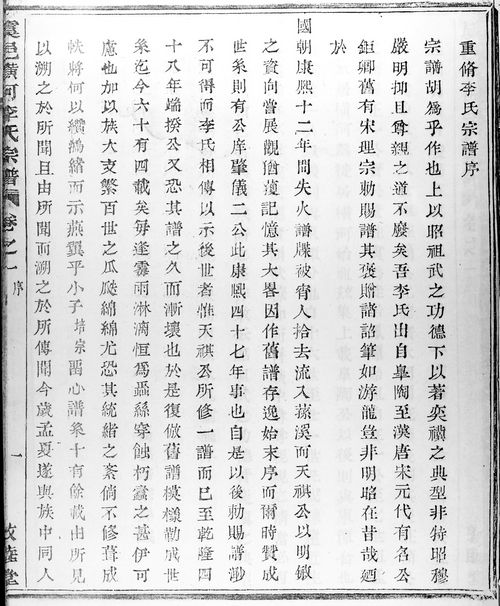 重脩李氏宗譜序
宗譜胡為乎作也上以昭祖武之功德下以著奕禩之典型非特昭穆
嚴明抑且尊親之道不廢矣吾李氏出自皐陶至漢唐宋元代有名公
鉅卿舊有宋理宗勅賜譜其褒贈諸詔筆如游龍豈非明昭在昔哉廼
於
國朝康熙十二年間失火譜牒被宵人拾去流入蓀溪而天祺公以明敏
之資向嘗展觀猶復記憶其大畧因作舊譜存逸始末序而爾時贊成
世系則有公庠肇儀二公此康熙四十七年事也自是以後勅賜譜渺
不可得而李氏相傳以示後世者惟天祺公所修一譜而已至乾隆四
十八年端揆公又恐其譜之久而漸壞也於是復倣舊譜模樣勒成世
系迄今六十有四載矣每逢霪雨淋漓恒為蟲絲穿蝕朽蠹之甚伊可
慮也加以族大支繁百世之瓜瓞綿綿尤恐其統緒之紊倘不修葺成
帙將何以纘鴻緒而示燕翼乎小子培宗醑心譜系十有餘載由所見
以溯之於所聞且由所聞而溯之於所傳聞今歲孟夏遂與族中同人
虞邑橫河李氏宗譜 卷之一 序
一
敦睦堂